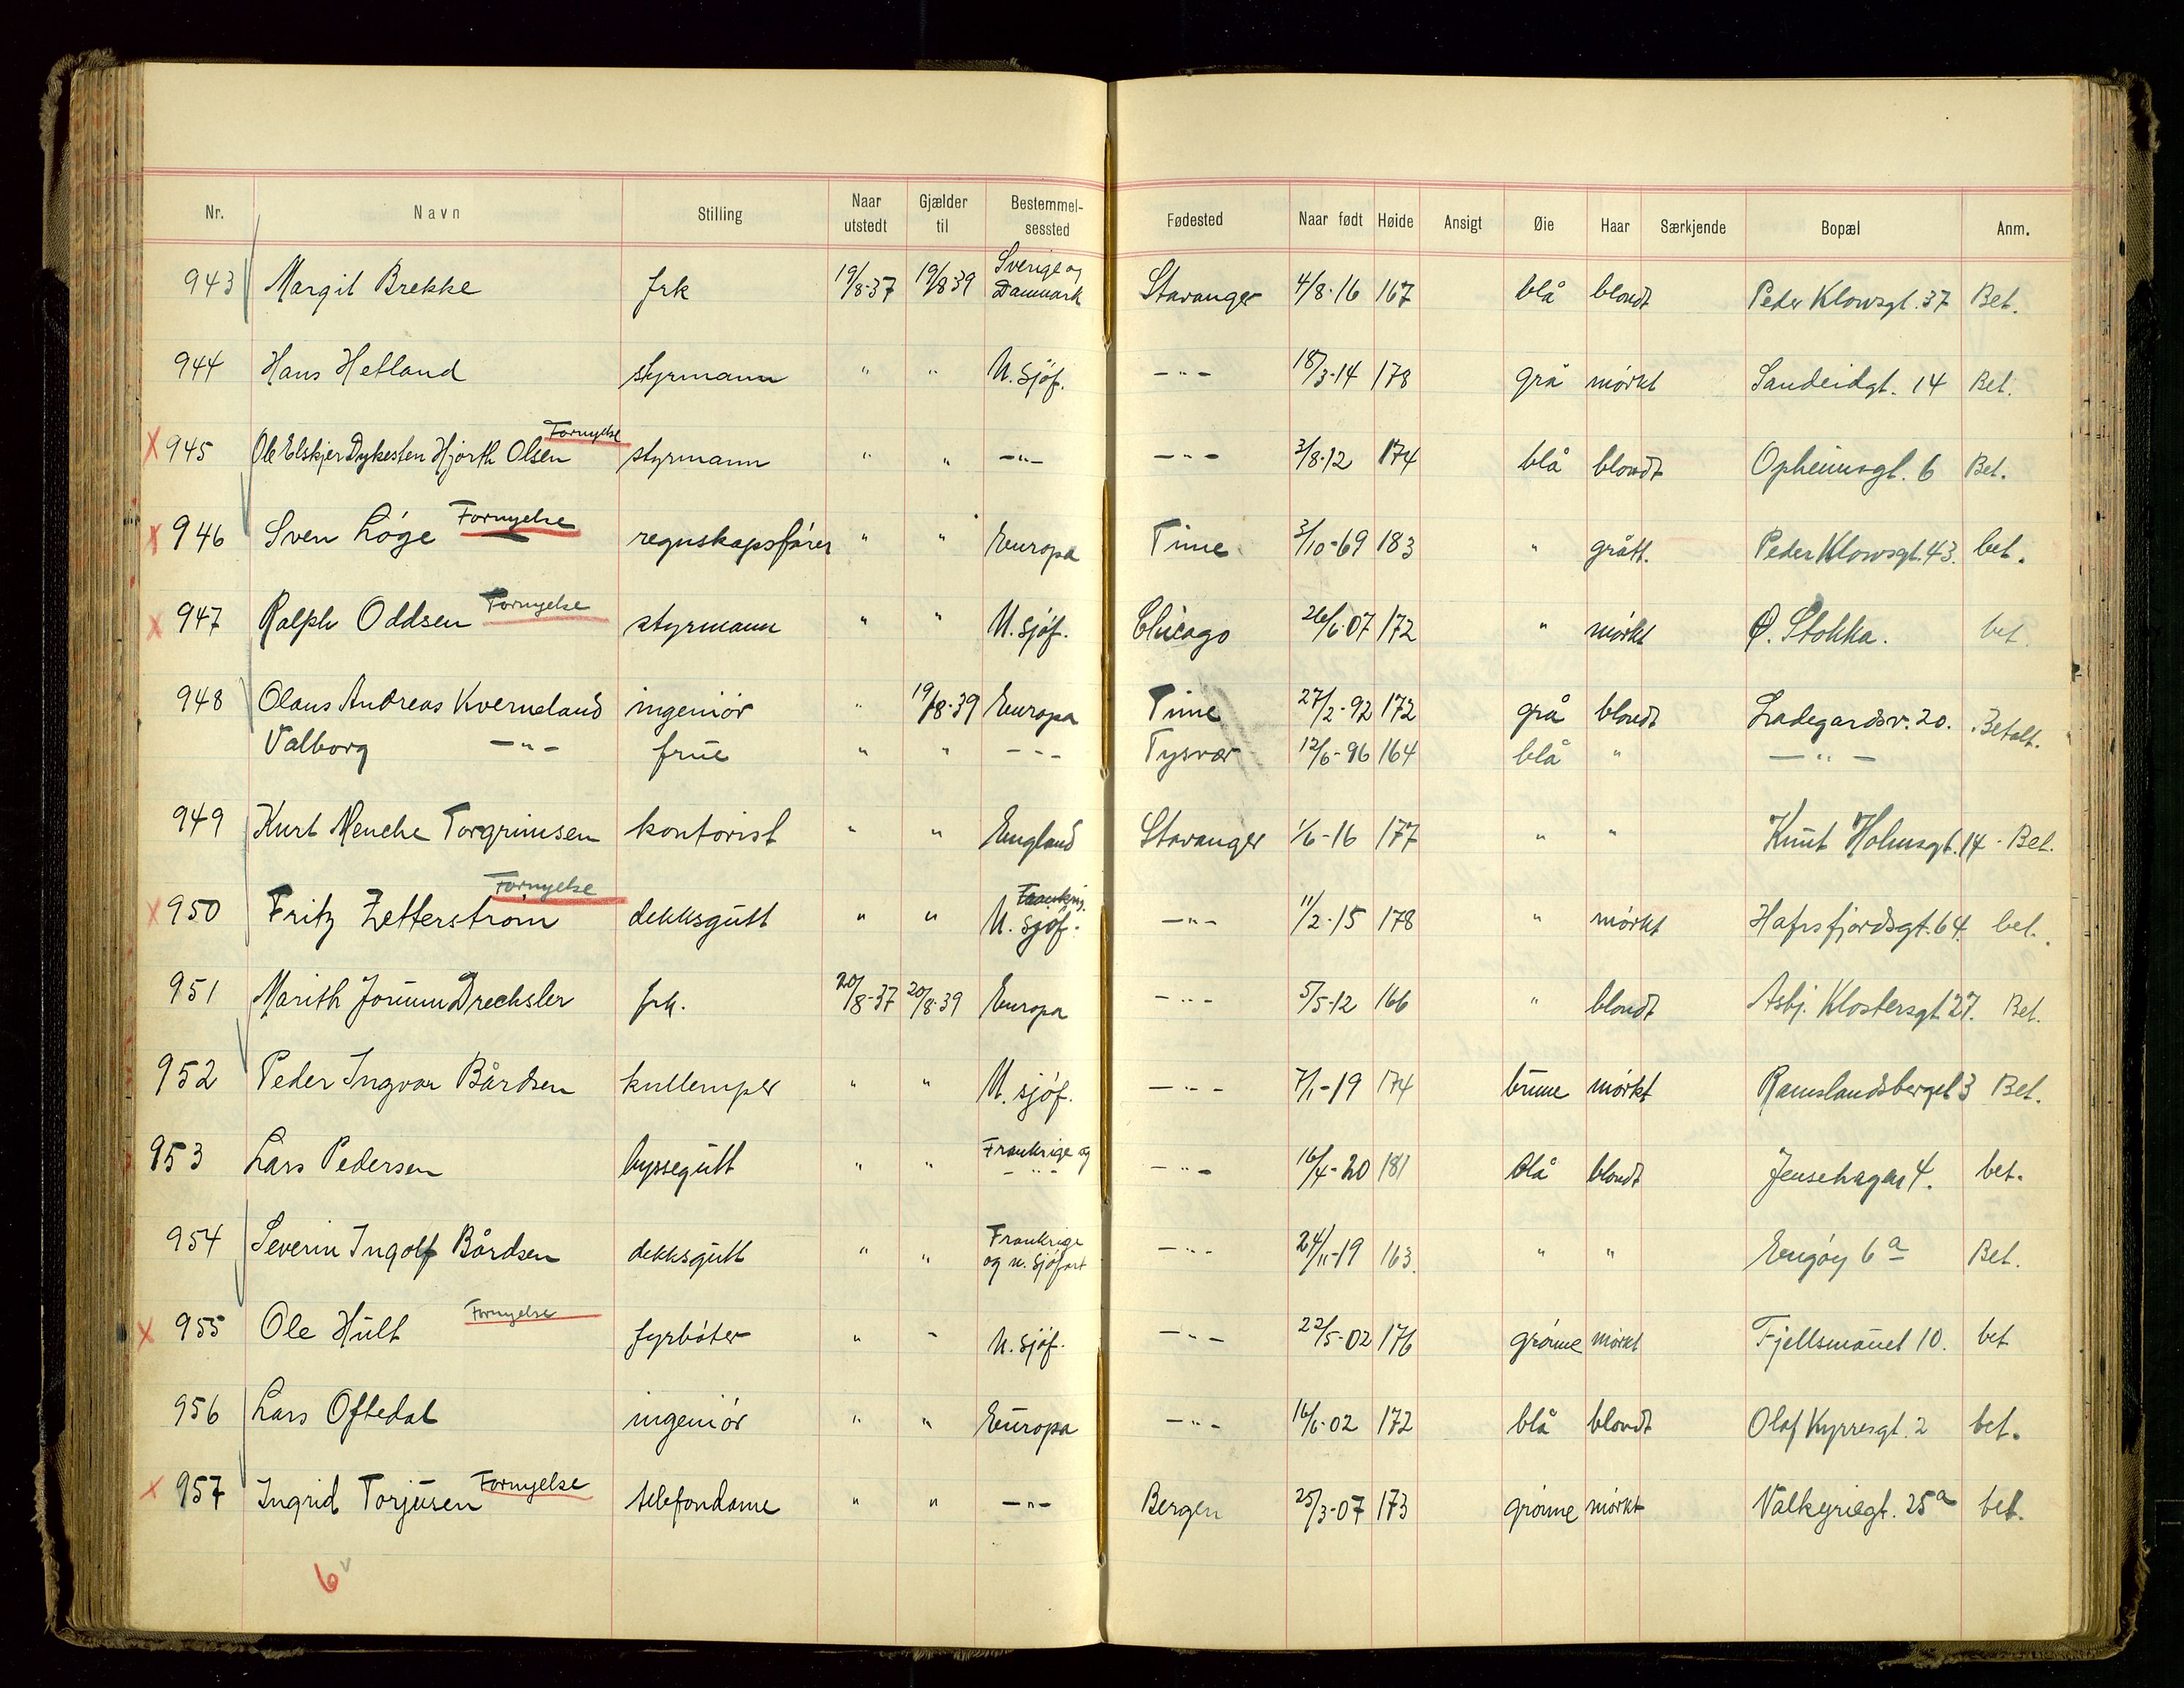 Nr. Navn Stilling Naar utstedt Gjælder til Bestemmel-sessted Fødested Naar født Høide Ansigt Øie Haar Særkjende Bopæl Anm.
943 Margit Brekke frk 19/8-37 19/8-39 Sverige og Danmark Stavanger 4/8-16 167 blå blondt Peder Klowsgt. 37 Bet.
944 Hans Hetland styrmann " " U. Sjöf. -"- 18/3-14 178 grå mörkt Sandeidgt. 14 Bet.
Fornyelse
X 945 Ole Elskjer Dykesten Hjorth Olsen styrmann " " -"- -"- 3/8-12 174 blå blondt Opheimsgt. 6 Bet.
X 946 Sven Löge Fornyelse regnskapsförer " " Europa Time 3/10-69 183 " grått. Peder Klowsgt. 43. bet.
X 947 Ralph Oddsen Fornyelse styrmann " " U. Sjöf. Chicago 26/6-07 172 " mörkt Ø. Stokka. bet.
948 Olaus Andreas Kverneland ingeniör " 19/8-39 Europa Time 27/2-92 172 grå blondt Ladegardsv. 20. Betalt.
Valborg -"- frue " " --- Tysvær 12/6-96 164 blå " -"-
949 Kurt Menche Torgrimsen kontorist " " England Stavanger 1/6-16 177 " " Knut Holmsgt. 14 - Bet.
X 950 Fritz Zetterström Fornyelse dekksgutt " " U. Sjöf. -"- 11/2-15 178 " mörkt Hafrsfjordsgt. 64. bet.
951 Marith Jorunn Drechsler frk. 20/8-37 20/8-39 Europa -"- 5/5-12 166 " blondt Asbj. Klostersgt. 27. Bet.
952 Peder Ingvar Bårdsen kullemper " " U. sjöf. -"- 7/1-19 174 brune mörkt Ramslandsberget 3 Bet.
953 Lars Pedersen byssegutt " " Frankrige og -"- -"- 16/4-20 181 blå blondt Jensehagen 4. bet.
954 Severin Ingolf Bårdsen dekksgutt " " Frankrige og u. Sjöfart -"- 24/11-19 163. " " Engöy 6a Bet.
X 955 Ole Hult Fornyelse fyrböter " - U. Sjöf. -"- 22/5-02 176 grönne mörkt Fjellsmauet 10. bet
956 Lars Oftedal ingeniör " " Europa -"- 16/6-02 172 blå blondt Olaf Kyrresgt. 2 bet.
X 957 Ingrid Torjusen Fornyelse telefondame " " -"- Bergen 25/3-07 173 grönne mörkt Valkyriegt. 25a bet.
6 v